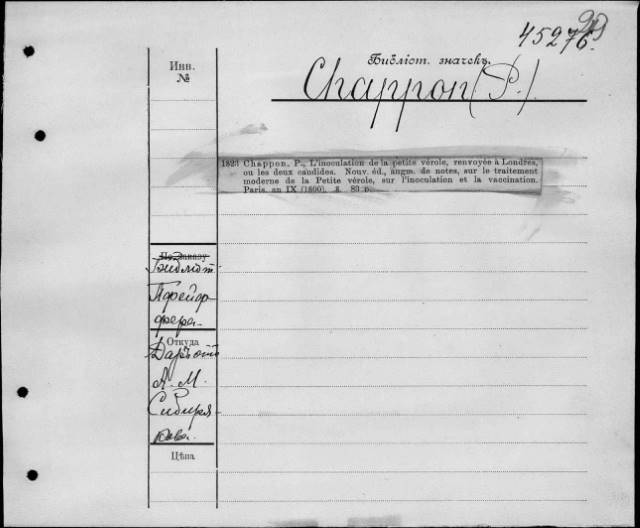 45276.
Библіот. значекъ.
Chappon (P.)
Инв.
№
1823 Chappon, P., L'inoculation de la petite vérole, renvoyée à Londres,
ou les deux candides. Nouv. éd., augm. de notes, sur le traitement
moderne de la Petite vérole, sur l'inoculation et la vaccination.
Paris, an IX (1800). 8. 83 p.
По заказу
Библіот.
Пфейф-
фера.
Откуда
Даръ отъ
А. М.
Сибиря-
кова.
Цѣна